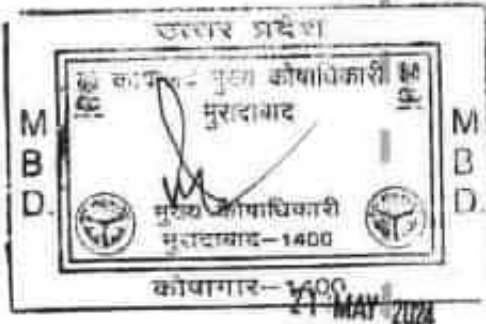 उत्तर प्रदेश
मुख्य कोषाधिकारी
मुरादाबाद
M B D.
M B D.
मुख्य कोषाधिकारी
मुरादाबाद-1400
कोषागार-1400
21 MAY 2024